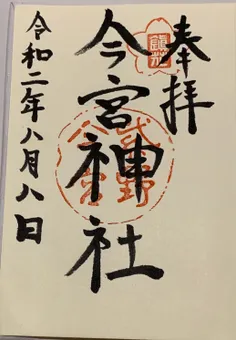 奉拝
今宮神社
令和二年八月八日